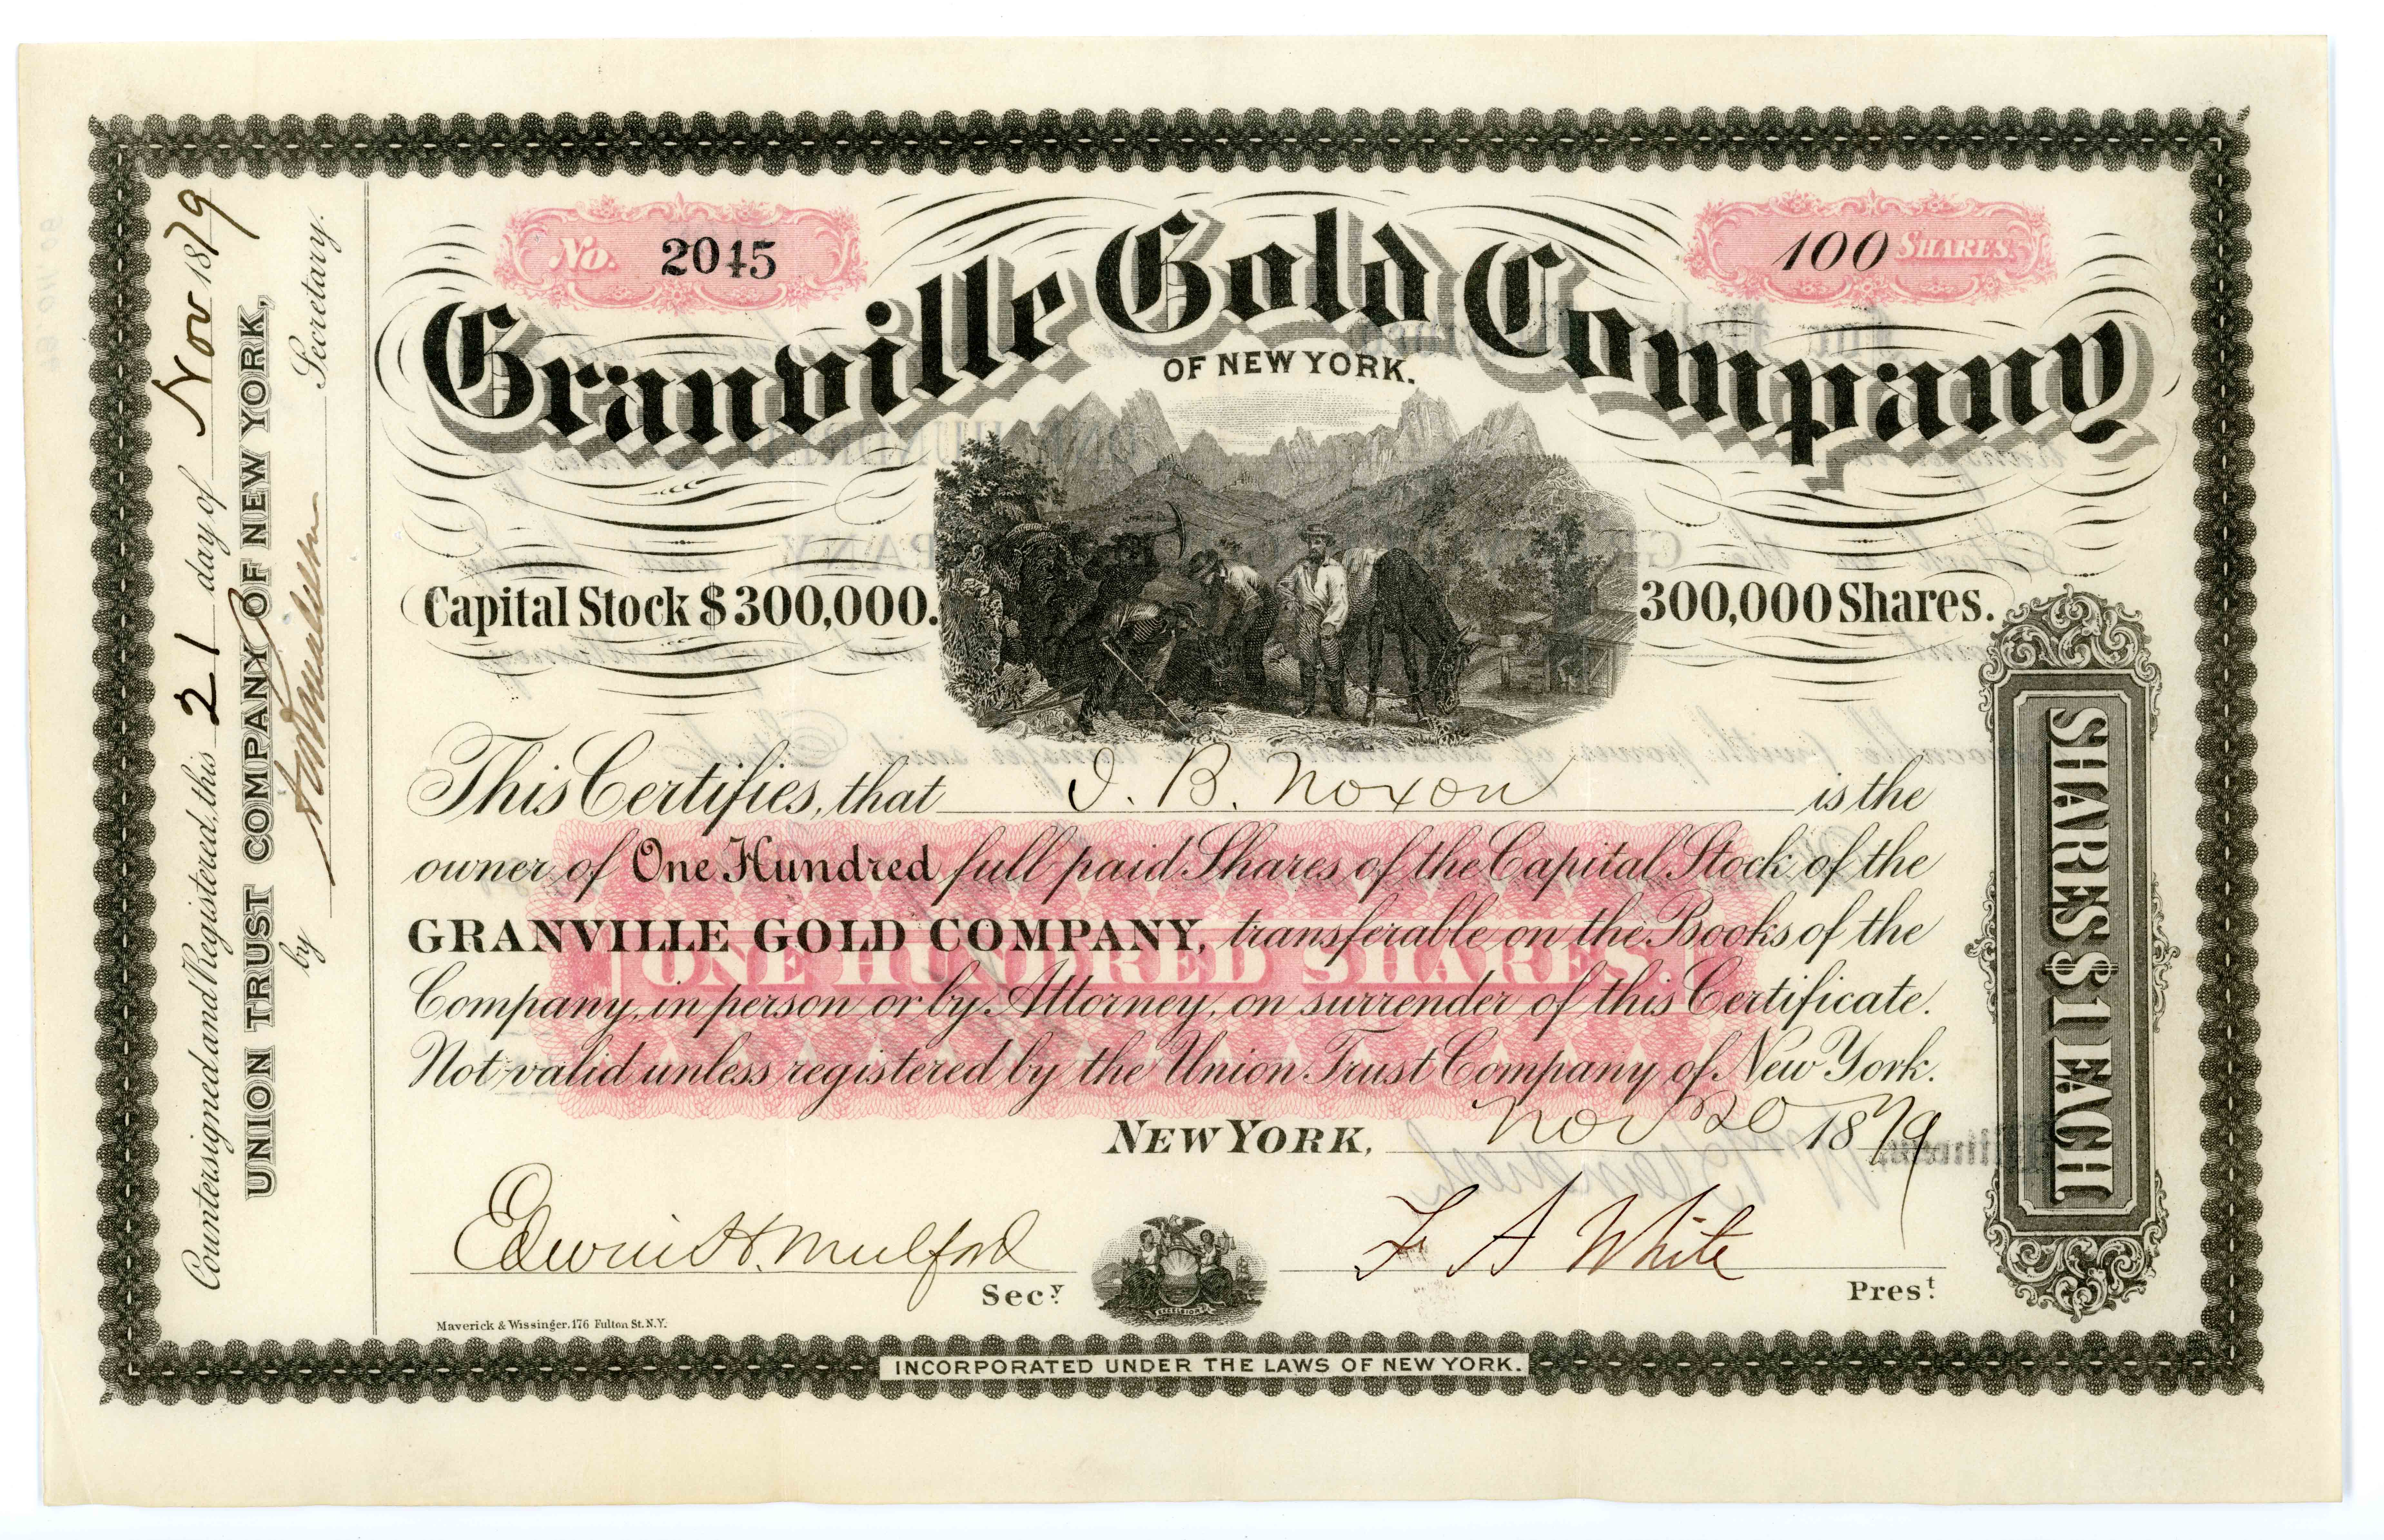 No. 2045
100 SHARES.
Granville Gold Company
OF NEW YORK.
Capital Stock $300,000.
300,000 Shares.
This Certifies, that I. B. Noxon is the
owner of One Hundred full paid Shares of the Capital Stock of the
GRANVILLE GOLD COMPANY, transferable on the Books of the
ONE HUNDRED SHARES.
Company, in person or by Attorney, on surrender of this Certificate.
Not valid unless registered by the Union Trust Company of New York.
NEW YORK, Nov 20 1879
Edwin H. Mulford
Secy.
F A White
Prest.
EXCELSIOR
Maverick & Wissinger, 176 Fulton St. N.Y.
INCORPORATED UNDER THE LAWS OF NEW YORK.
SHARES $1 EACH
Countersigned and Registered, this 21 day of Nov 1879
UNION TRUST COMPANY OF NEW YORK,
by Secretary.